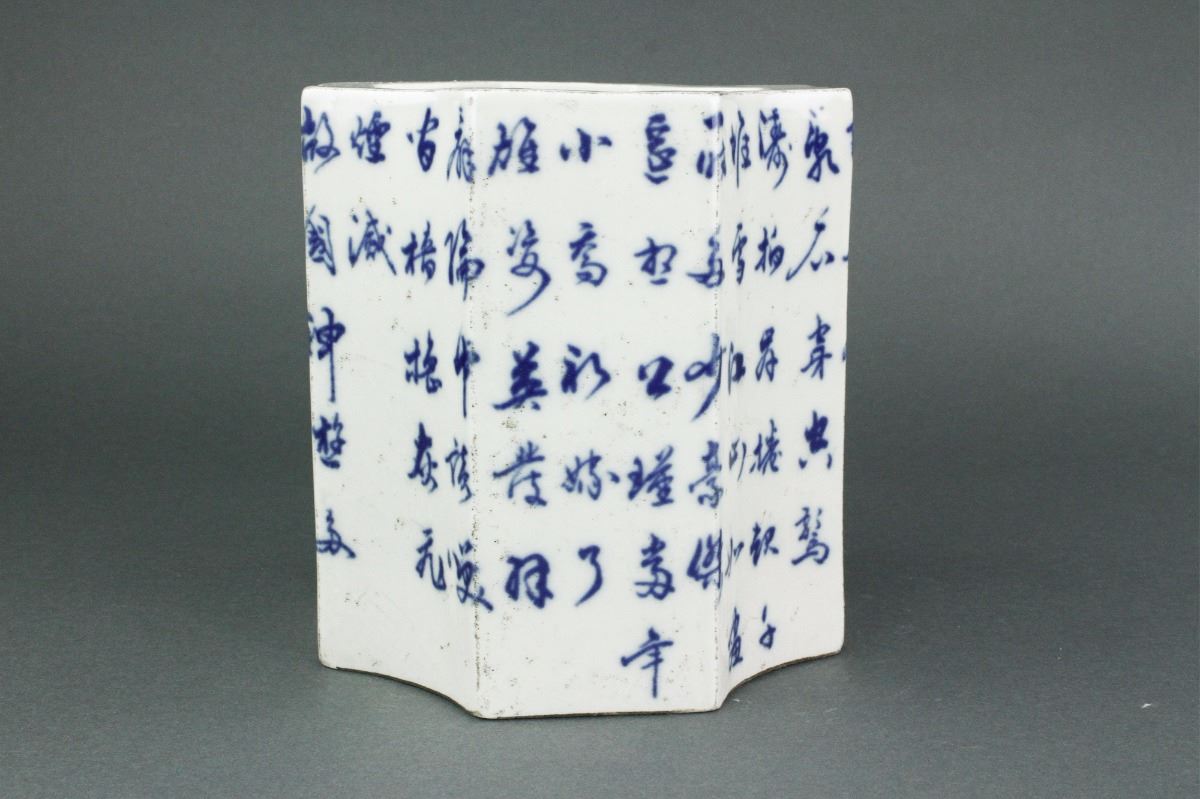 亂石穿空驚
濤拍岸捲起千
堆雪江山如畫
時多少豪傑
遙想公瑾當年
小喬初嫁了
雄姿英發羽
扇綸巾談笑
間檣櫓灰飛
煙滅
故國神遊多